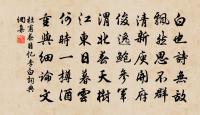 白也詩無敵
飄然思不群
清新庾開府
俊逸鮑參軍
渭北春天樹
江東日暮雲
何時一樽酒
重與細論文
杜甫春日憶李白詞典
網集